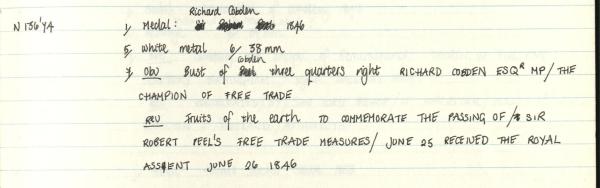 Richard Cobden
N 136'Y4 1, Medal: 1846
5, White metal 6/ 38 mm
Cobden
7, Obv Bust of three quarters right RICHARD COBDEN ESQR MP/THE
CHAMPION OF FREE TRADE
Rev Fruits of the earth TO COMMEMORATE THE PASSING OF/ SIR
ROBERT PEEL'S FREE TRADE MEASURES/ JUNE 25 RECEIVED THE ROYAL
ASSENT JUNE 26 1846